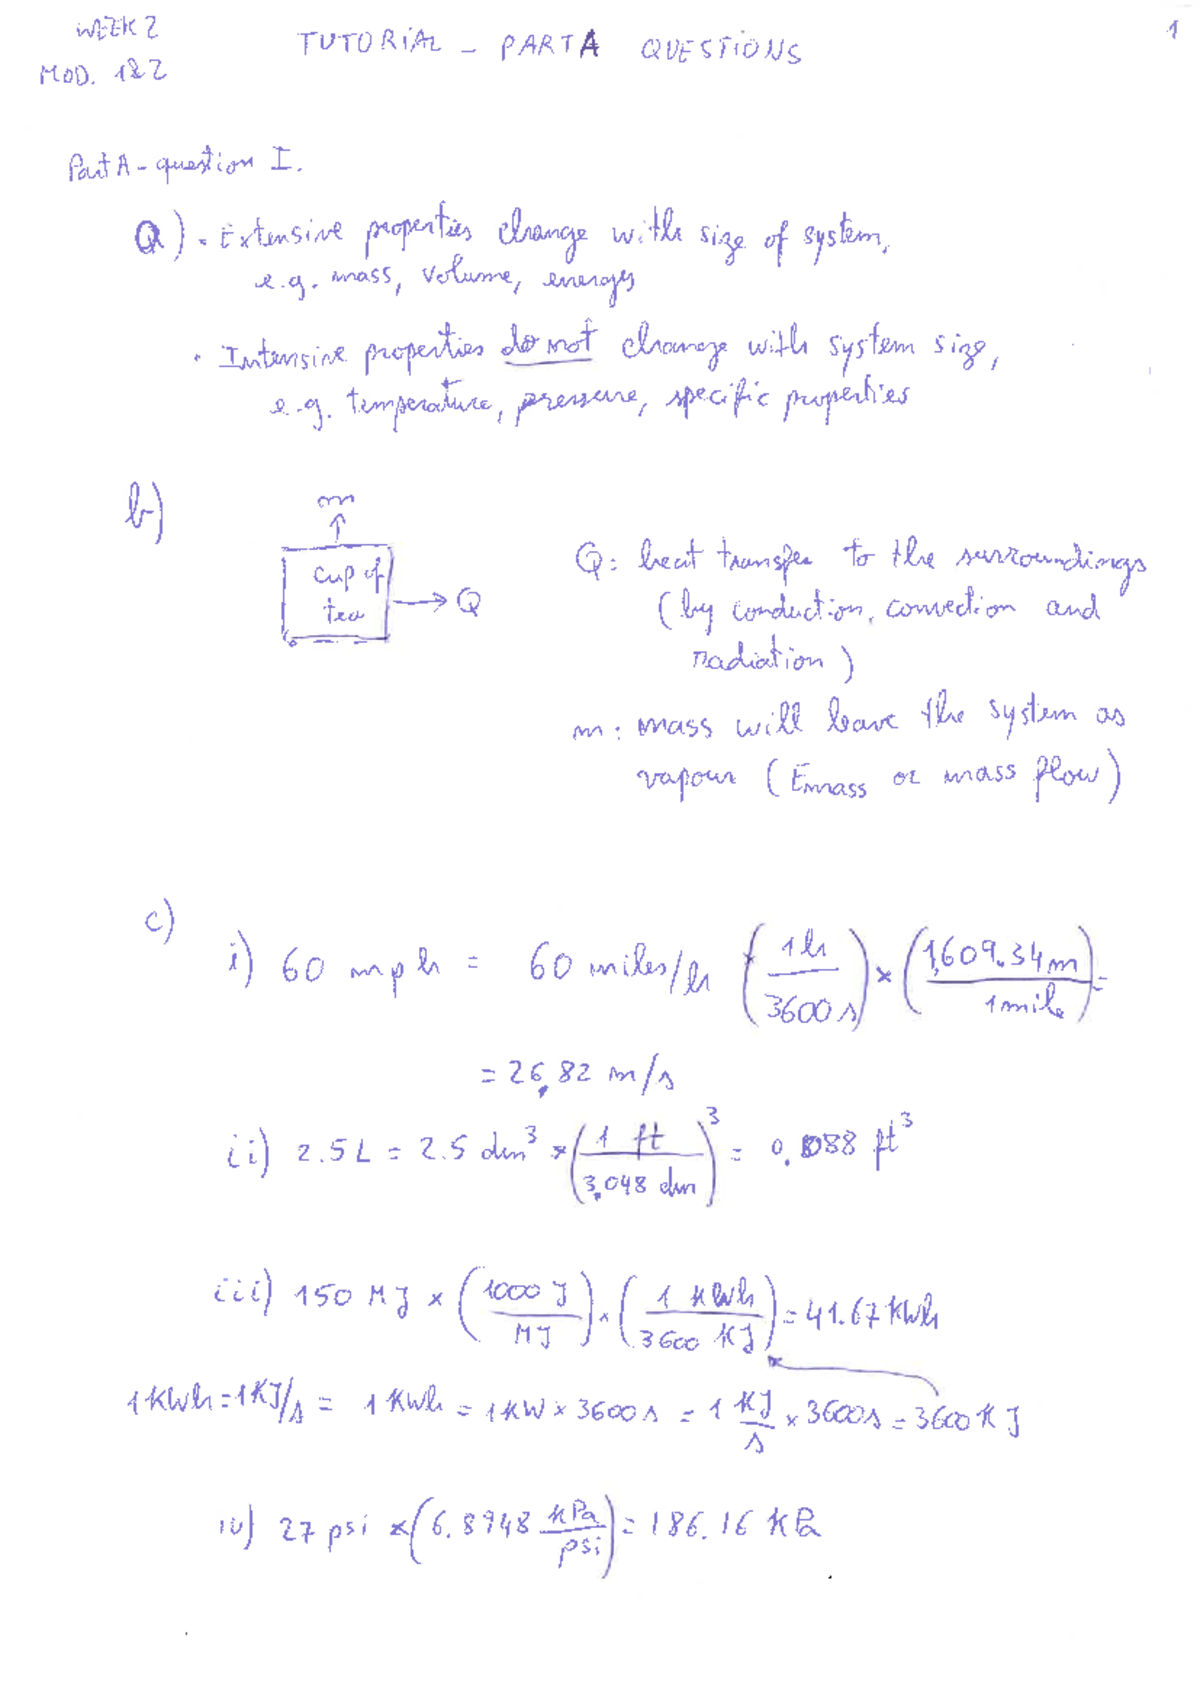 WEEK 2
MOD. 1&2
TUTORIAL - PART A QUESTIONS
1
Part A - question I.
a) • Extensive properties change with size of system,
e.g. mass, volume, energy
• Intensive properties do not change with system size,
e.g. temperature, pressure, specific properties
b)
m
↑
cup of
tea
→ Q
Q: heat transfer to the surroundings
(by conduction, convection and
radiation)
m: mass will leave the system as
vapour (Emass or mass flow)
c)
i) 60 mph = 60 miles/h × (1h / 3600 s) × (1,609.34 m / 1 mile) =
= 26.82 m/s
ii) 2.5 L = 2.5 dm³ × (1 ft / 3.048 dm)³ = 0.088 ft³
iii) 150 MJ × (1000 J / MJ) × (1 kWh / 3600 KJ) = 41.67 KWh
1 KWh = 1 KJ/s = 1 KWh = 1 KW × 3600 s = 1 KJ/s × 3600 s = 3600 KJ
iv) 27 psi × (6.8948 kPa / psi) = 186.16 kPa